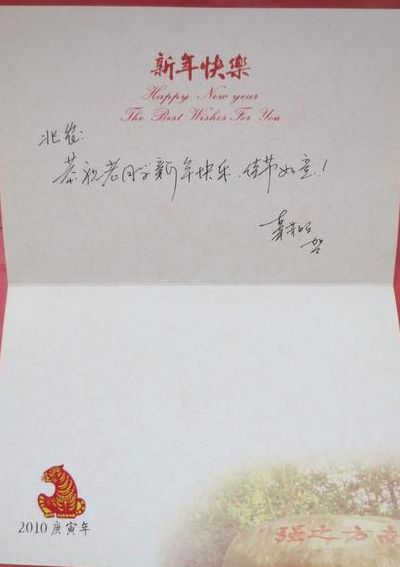 新年快樂
Happy New year
The Best Wishes For You
恭祝老同学新年快乐、佳节如意！
贺
2010 庚寅年
强之方